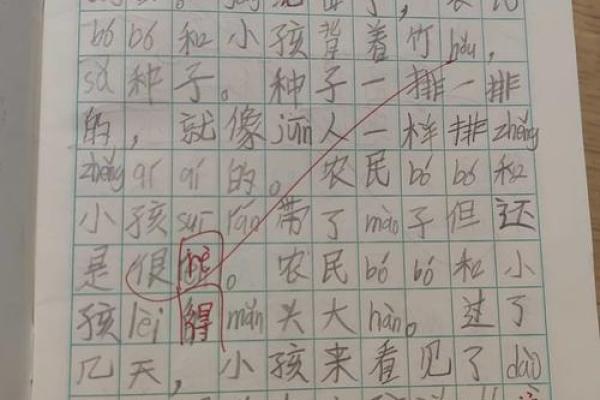 了，农民
bó bó 和小孩背着竹 hǎu，
sǎ 种子。种子一排一排
的，就像 jūn 人一样排 zhěng
zhěng qí qí 的。农民 bó bó 和
小孩 suī rán 带了 mào 子但还
是很。农民 bó bó 和小
孩 lèi 得 mǎn 头大 hàn。过了
几天，小孩来看见了 dào